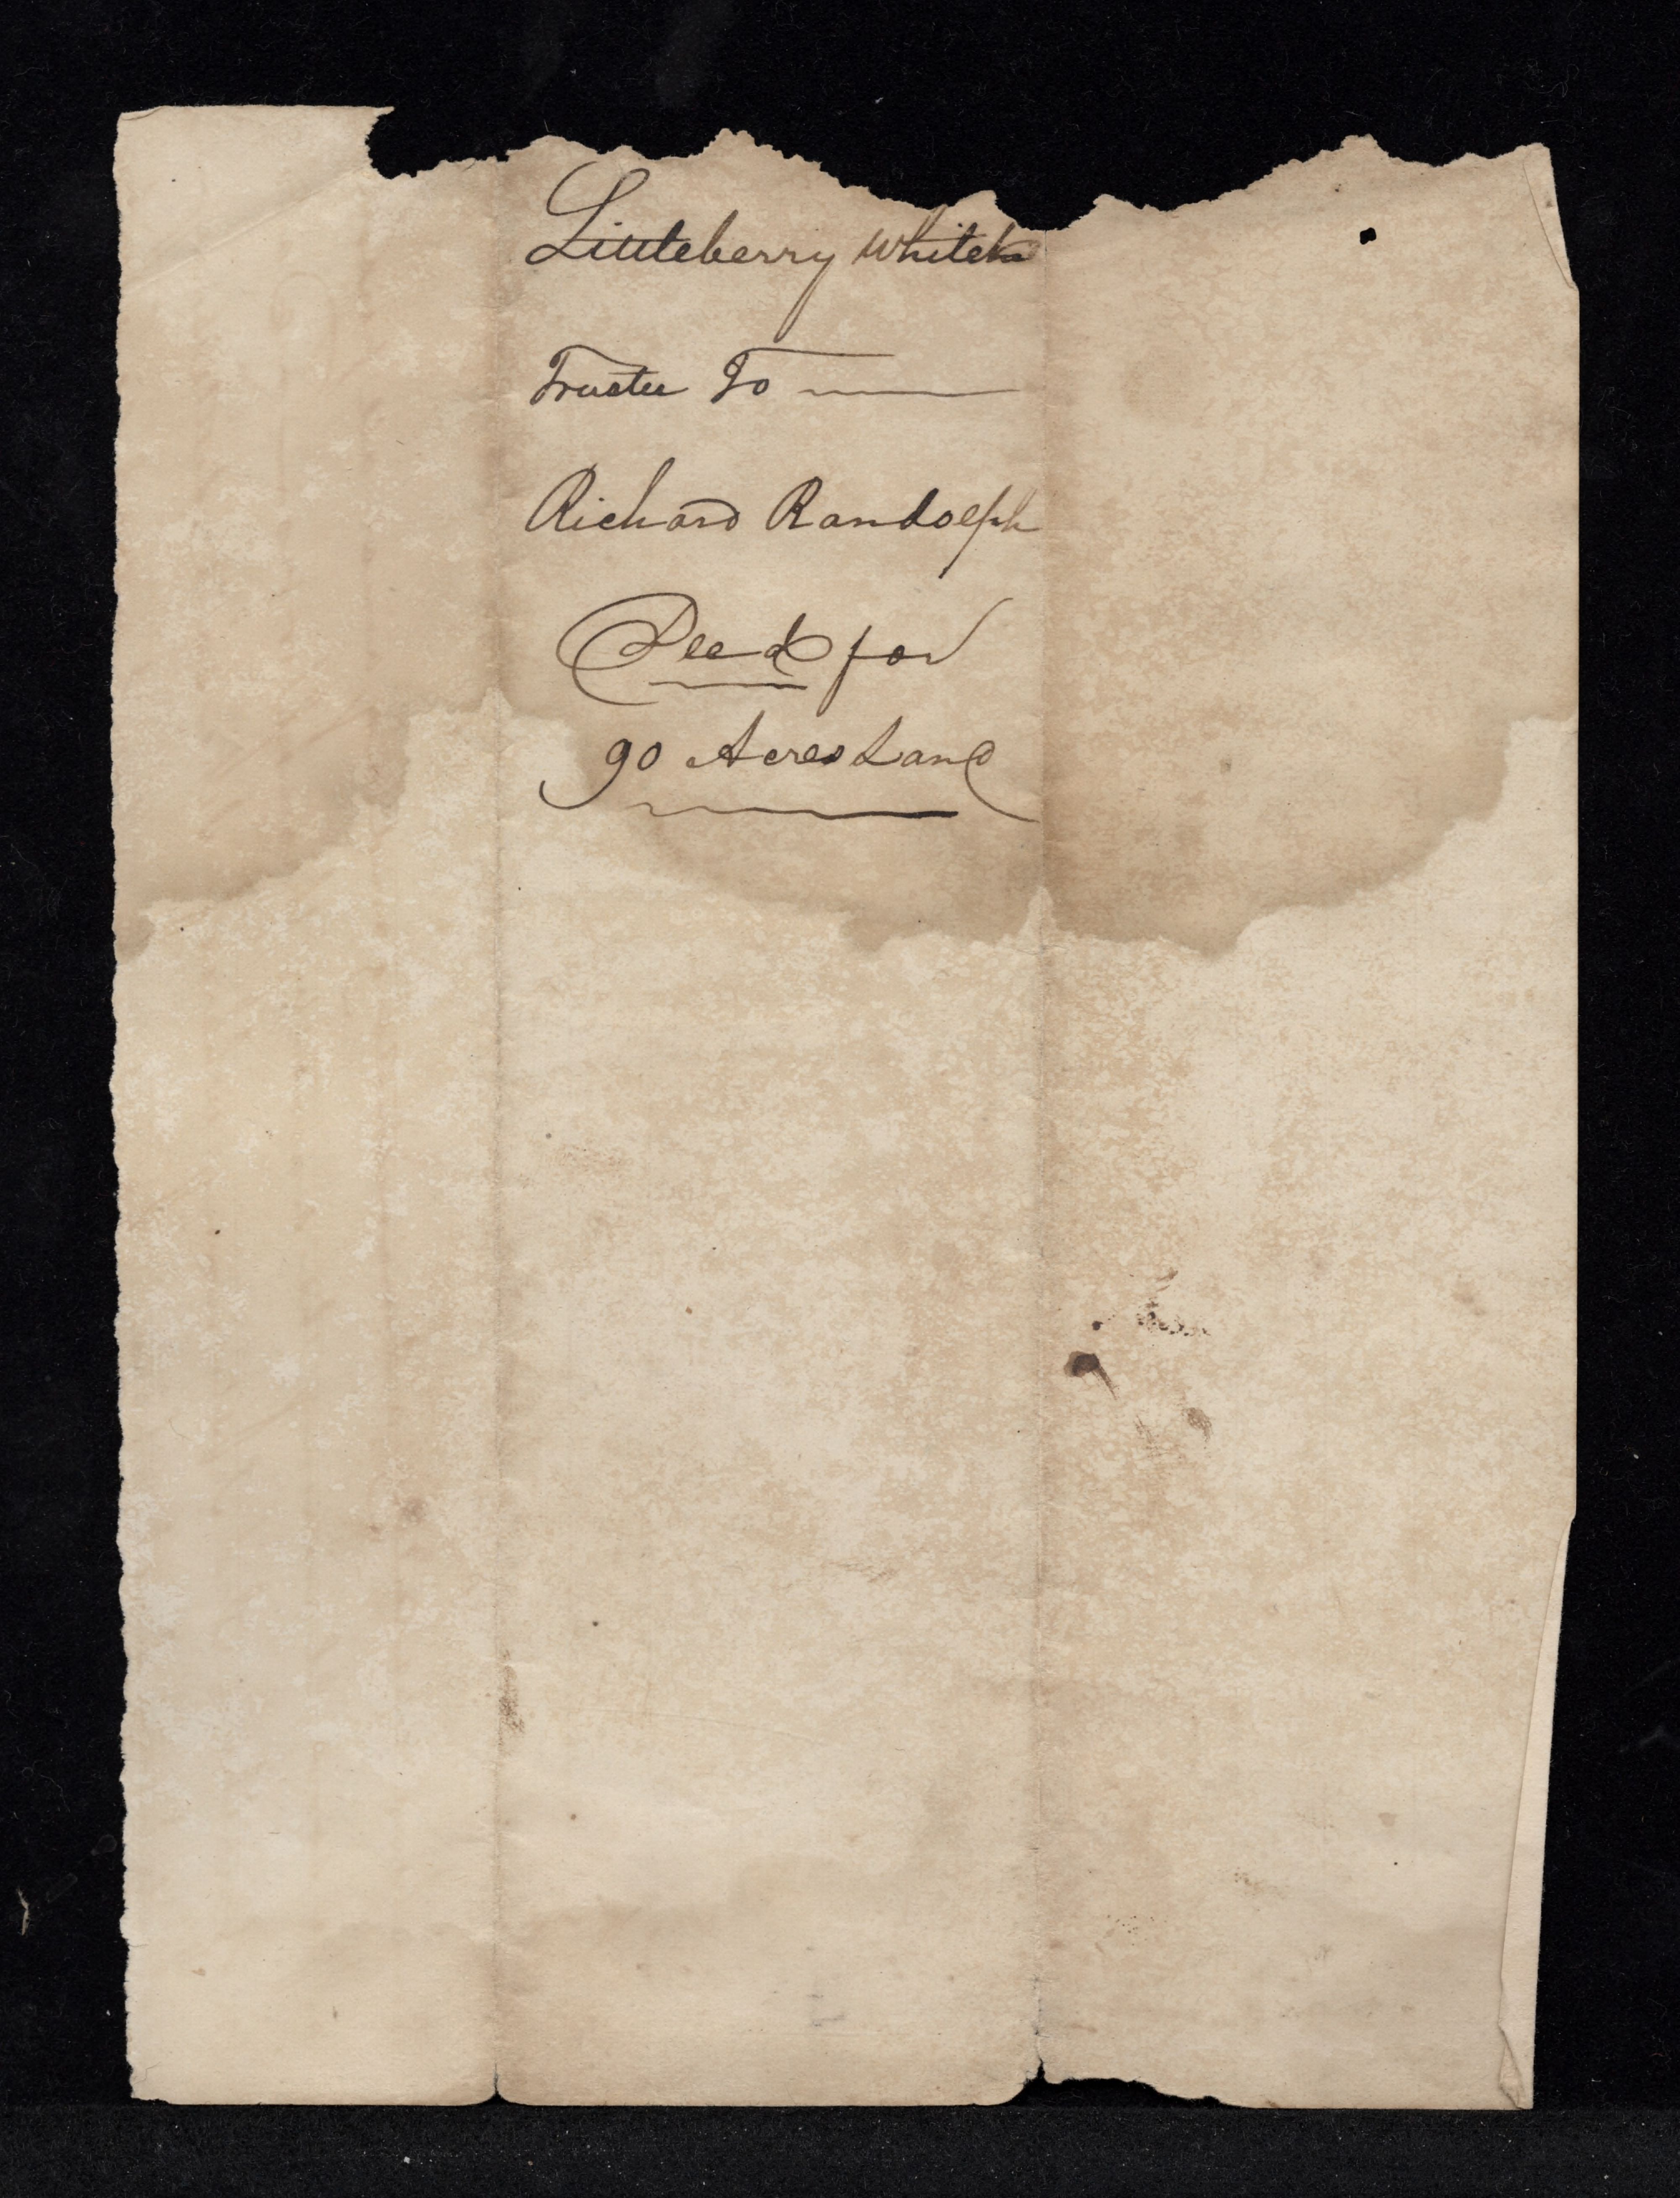 Littleberry White
Trustee To
Richard Randolph
Deed for
90 Acres Land